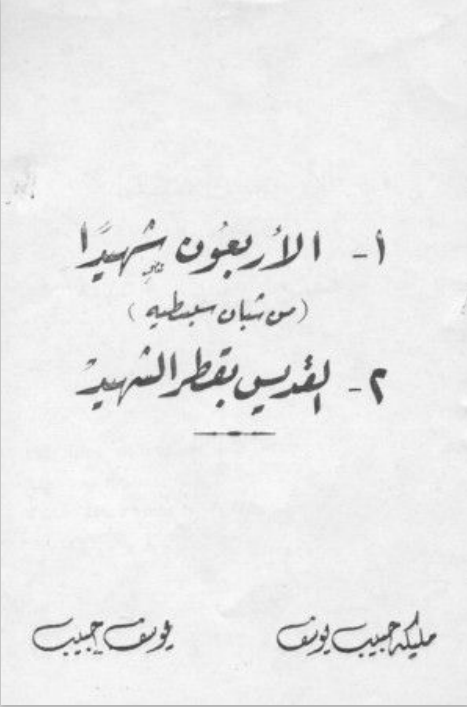 ١- الأربعون شهيدًا
(من شبان سبسطيه)
٢- القديس بقطر الشهيد
مليكه حبيب يوسف يوسف حبيب